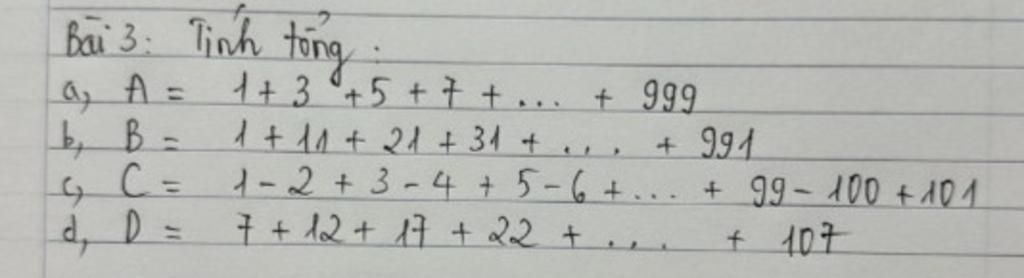 Bài 3: Tính tổng:
a, A = 1 + 3 + 5 + 7 + ... + 999
b, B = 1 + 11 + 21 + 31 + ... + 991
c, C = 1 - 2 + 3 - 4 + 5 - 6 + ... + 99 - 100 + 101
d, D = 7 + 12 + 17 + 22 + .... + 107